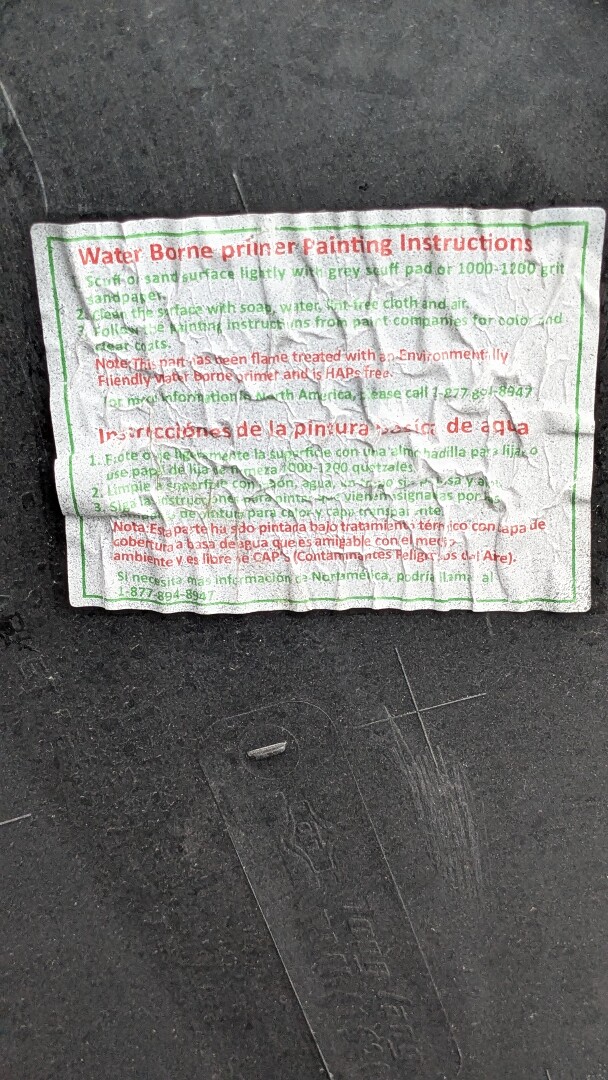 Water Borne primer Painting Instructions
1. Scuff or sand surface lightly with grey scuff pad or 1000-1200 grit
sandpaper.
2. Clean the surface with soap, water, lint-free cloth and air.
3. Follow the painting instructions from paint companies for color and
clear coats.
Note: This part has been flame treated with an Environmentally
Friendly Water Borne primer and is HAPs free.
for more information in North America, please call 1-877-894-8947
Instrucciónes de la pintura de agua
1. Frote o lije ligeramente la superficie con una almohadilla para lijar o
use papel de lija 1000-1200
2. Limpie la superficie con jabón, agua,
3. Siga las instrucciones para pintar que vienen por
de pintura para color y capa transparente.
Nota: Esta parte ha sido pintada bajo tratamiento térmico con capa de
cobertura a basa de agua que es amigable con el medio
ambiente y es libre de CAP's (Contaminantes Peligrosos del Aire).
Si necesita mas información Nortamélica, podría llamar al
1-877-894-8947